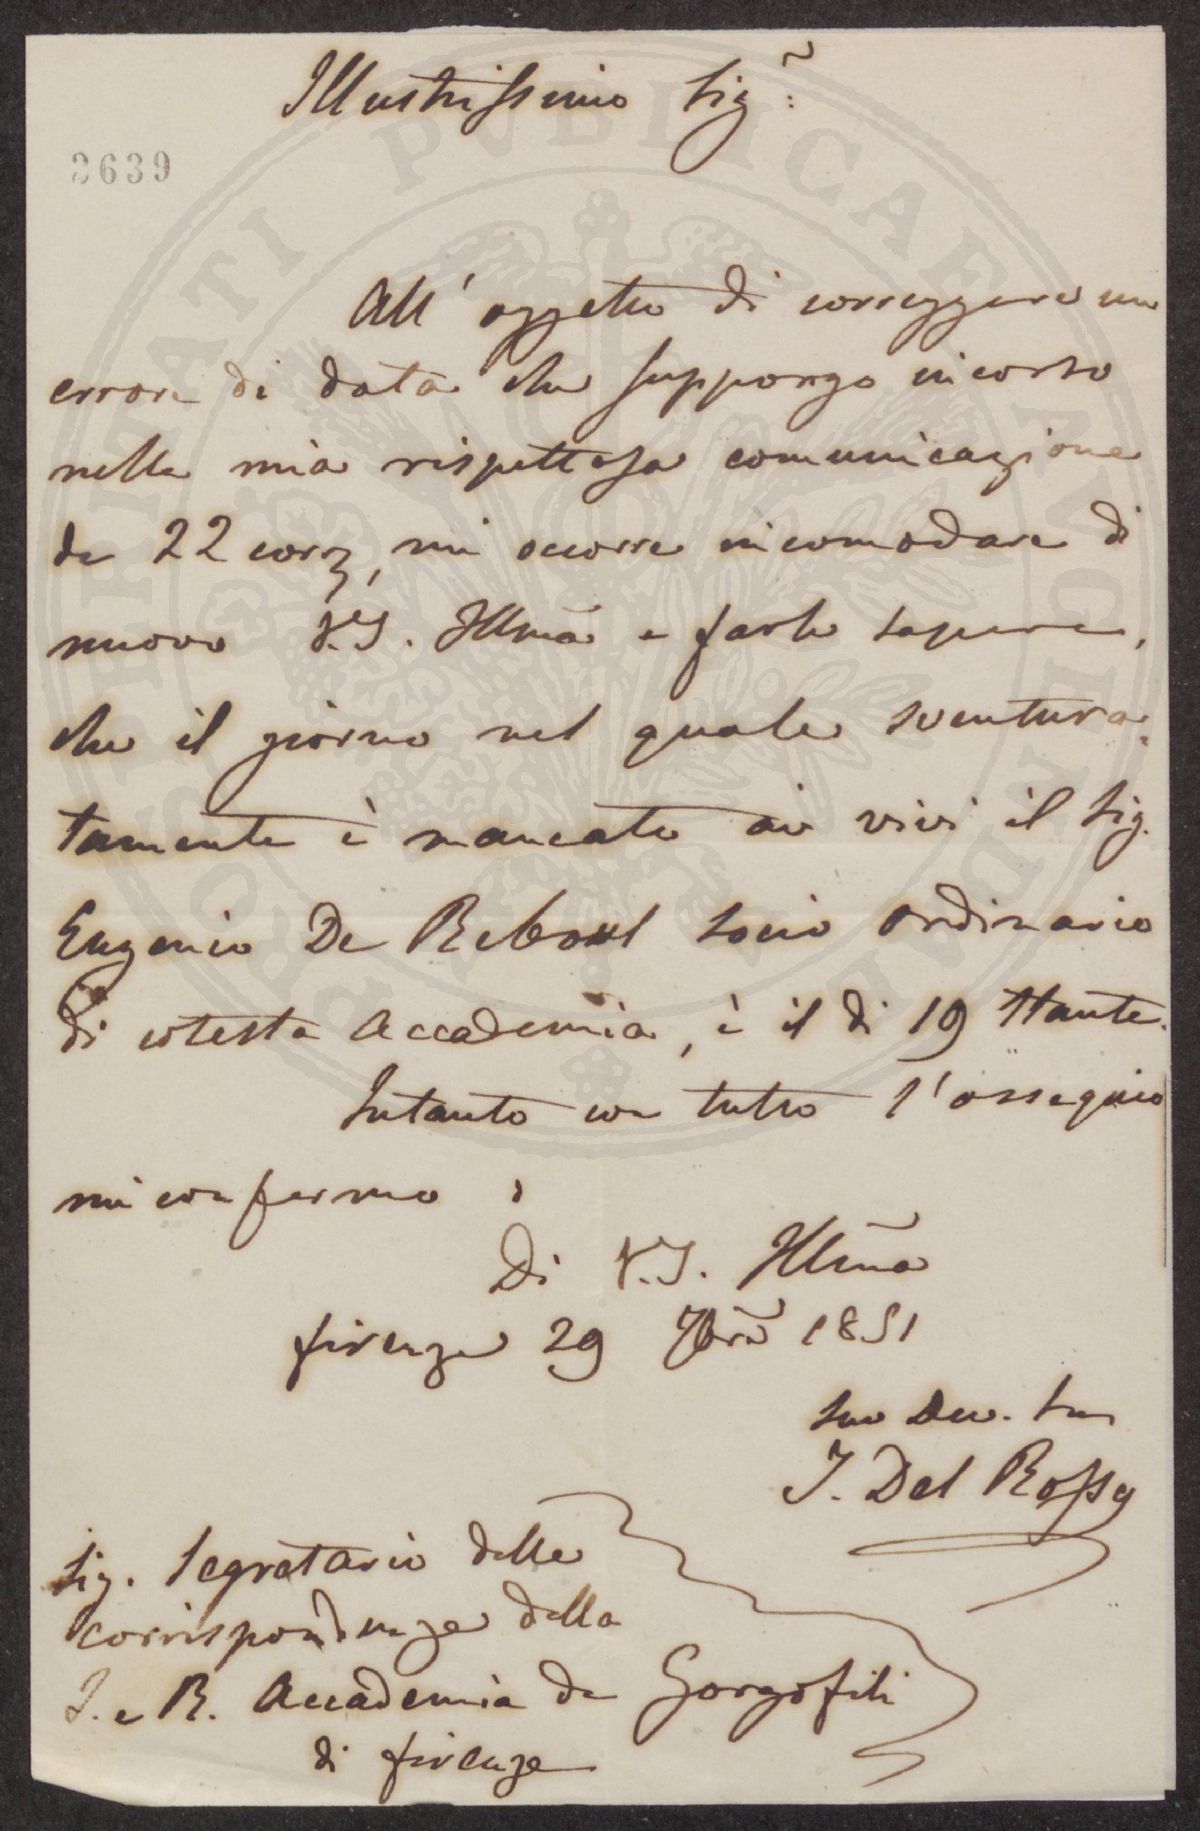 Illustrissimo Sig.r
2639
All'oggetto di correggere un
errore di data che suppongo incorso
nella mia rispettosa comunicazione
de 22 corr., mi occorre incomodare di
nuovo V.S. Illmã e farle sapere,
che il giorno nel quale sventura-
tamente è mancato ai vivi il Sig.
Eugenio De Reboul socio ordinario
di cotesta Accademia, è il dì 19 stante.
Intanto con tutto l'ossequio
mi confermo
Di V.S. Illmã
Firenze 29 1851
Suo Dev. Ser
J. Del Rosso
Sig. Segretario delle
corrispondenze della
I. e R. Accademia de Georgofili
di Firenze
PROSPERITATI PVBLICAE AVGENDAE